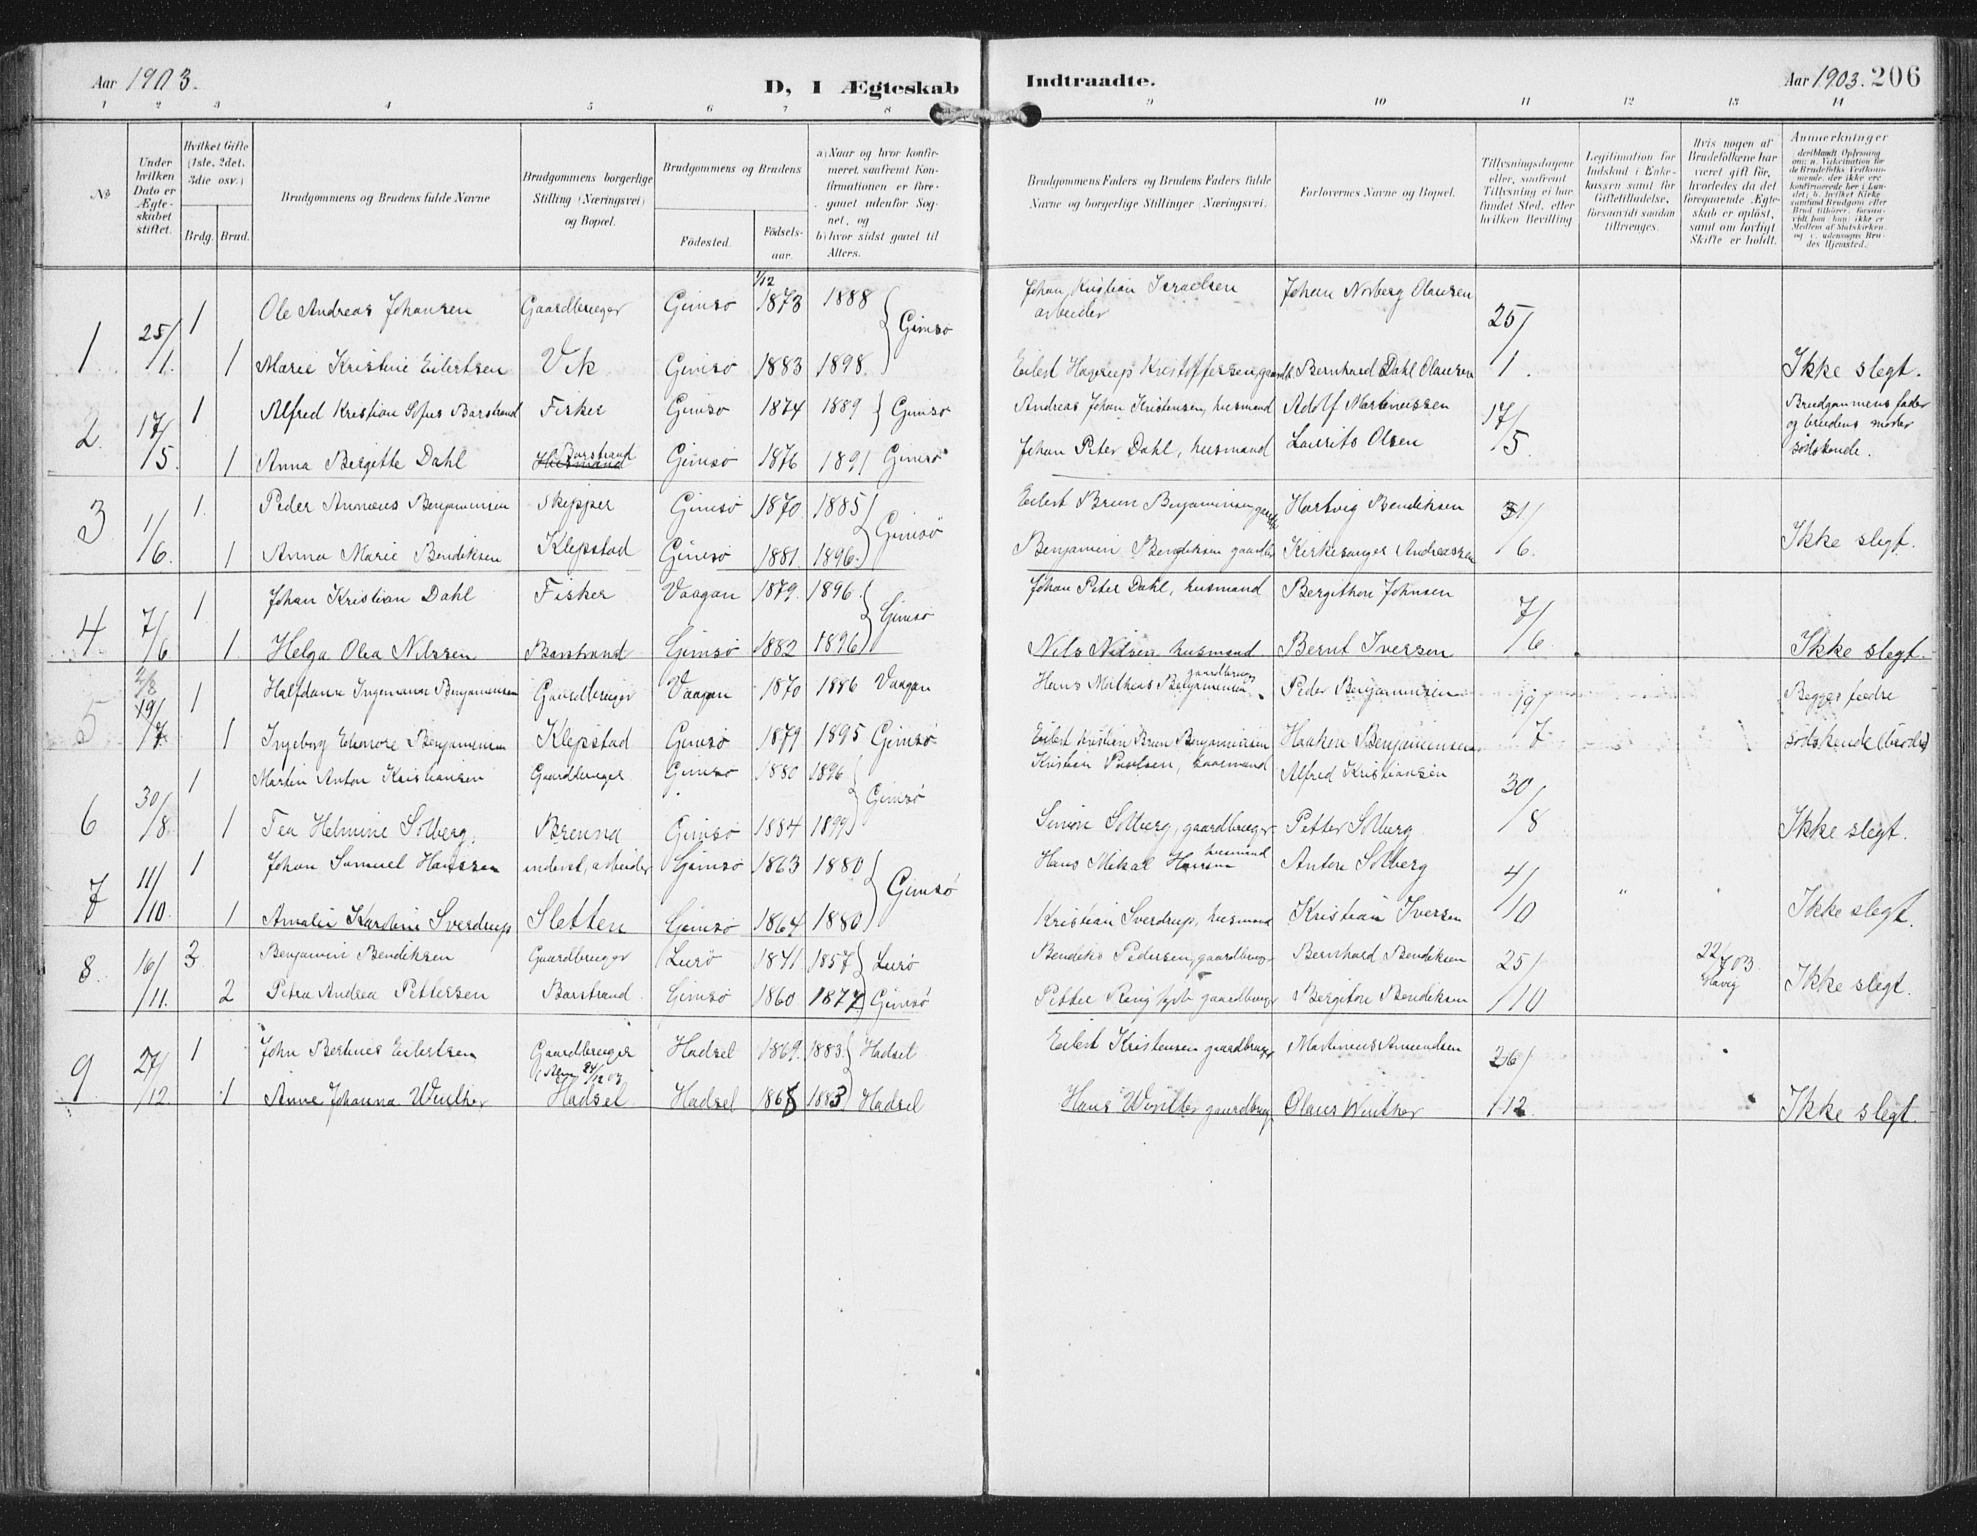 Aar 1903.
D, I Ægteskab Indtraadte.
Aar 1903. 206
1 2 3 4 5 6 7 8 9 10 11 12 13 14
No
Under hvilken Dato er Ægteskabet stiftet.
Hvilket Gifte (1ste, 2det, 3die osv.)
Brdg. Brud.
Brudgommens og Brudens fulde Navne
Brudgommens borgerlige Stilling (Næringsvei) og Bopæl.
Brudgommens og Brudens
Fødested. Fødselsaar.
a) Naar og hvor konfirmeret, saafremt Konfirmationen er foregaaet udenfor Sognet, og
b) hvor sidst gaaet til Alters.
Brudgommens Faders og Brudens Faders fulde Navne og borgerlige Stillinger (Næringsvei.
Forlovernes Navne og Bopæl.
Tillysningsdagene eller, saafremt Tillysning ei har fundet Sted, efter hvilken Bevilling
Legitimation for Indskud i Enkekassen samt for Giftetilladelse, forsaavidt saadan tiltrænges.
Hvis nogen af Brudefolkene har været gift før, hvorledes da det foregaaende Ægteskab er opløst, samt om lovligt Skifte er holdt.
Anmerkninger
1 25/1. 1 Ole Andreas Johansen Gaardbruger Gimsø 1/12 1873 1888 Gimsø Johan Kristian Israelsen arbeider Johan Norberg Olausen 25/1.
1 Marie Kristine Eilertsen Vik Gimsø 1883 1898. Eilert Hagerups Kristoffersen, gaardb. Bernhard Dahl Olausen Ikke slegt.
2. 17/5. 1 Alfred Kristian Sofus Barstrand Fisker Gimsø 1874 1889 Gimsø Andreas Johan Kristensen, husmand Adolf Martinussen 17/5. Brudgommens fader og brudens moder sødskende.
1 Anna Bergitte Dahl Husmand Barstrand Gimsø 1876 1891 Gimsø Johan Peter Dahl, husmand Laurits Olsen
3 1/6. 1. Peder Annæus Benjaminsen Skipper Gimsø 1870 1885 Gimsø Eilert Brun Benjaminsen gaardb. Hartvig Bendiksen 31/6.
1 Anna Marie Bendiksen Klepstad Gimsø 1881. 1896. Benjamin Bendiksen gaardb. Kirkesanger Andreassen Ikke slegt.
4 7/6 1 Johan Kristian Dahl Fisker Vaagan 1879. 1896. Gimsø Johan Peter Dahl, husmand Bergithon Johnsen 7/6
1. Helga Olea Nilssen Barstrand Gimsø 1882 1896 Nils Nilsen husmand Bernt Iversen Ikke slegt.
5 2/8 19/7. 1 Halfdann Ingemann Benjaminsen Gaardbruger Vaagan 1870 1886 Vaagan Hans Matheus Benjaminsen gaardbruger Peder Benjaminsen 19/7 Begges fædre
1 Ingeborg Elenore Benjaminsen Klepstad Gimsø 1879 1895 Gimsø Eilert Kristian Brun Benjaminsen Haakon Benjaminsen sødskende (brødre)
6 30/8. 1 Martin Anton Kristiansen Gaardbruger Gimsø 1880 1896 Gimsø Kristian Paulsen, Alfred Kristiansen 30/8
1 Tea Helmine Solberg. Brenna Gimsø 1884 1899 Simon Solberg, gaardbruger Petter Solberg Ikke slegt.
7 11/10. 1 Johan Samuel Hanssen inderst, arbeider Gimsø 1863 1880 Gimsø Hans Mikal Hansen husmand Anton Solberg 4/10 "
1 Amalie Karoline Sverdrup Sletten Gimsø 1864 1880 Kristian Sverdrup, husmand Kristian Iversen Ikke slegt.
8 16/11. 3 Benjamin Bendiksen Gaardbruger Lurø 1841 1857 Lurø Bendiks Pedersen, gaardbrug. Bernhard Bendiksen 25/10 22/7 03.
2 Petra Andrea Pettersen Barstrand Gimsø 1860 1877 Gimsø Petter gaardbruger Bergiton Bendiksen Ikke slegt.
9 27/12. 1 John Bertines Eilertsen Gaardbruger Hadsel 1869. 1883. Hadsel Eilert Kristensen gaardbruger Martinus Amundsen 26/12
1 Anne Johanna Winther Hadsel Hadsel 1868 1883 Hadsel Hans Winther gaardbrug Olaus Winther Ikke slegt.